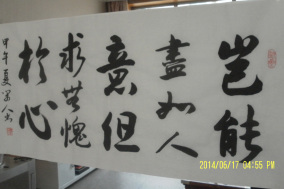 豈能
盡如人
意但
求無愧
於心
甲午夏
2014/05/17 04:55 PM